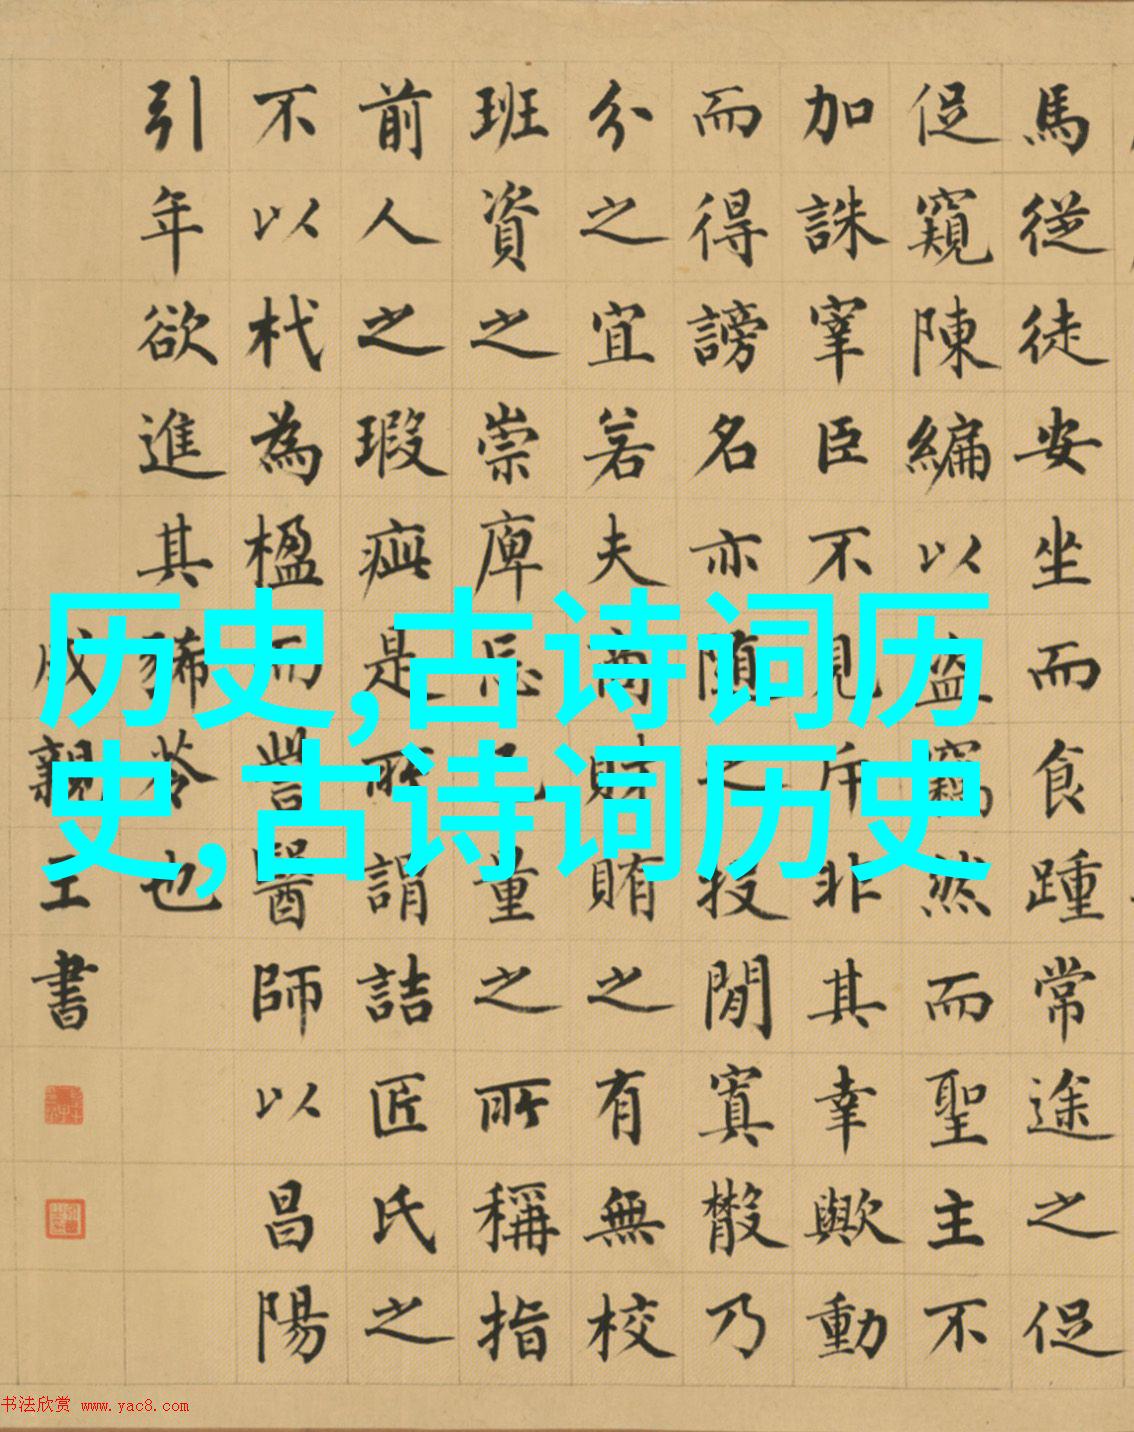 馬從徒安坐而食踵常途之促
促窺陳編以盜竊然而聖主不
加誅宰臣不見斥非其幸歟動
而得謗名亦随之投閒寘散乃
分之宜若夫商財賄之有無校
班資之崇庳忘己量之所稱指
前人之瑕疵是所謂詰匠氏之
不以杙為楹而訾醫師以昌陽
引年欲進其豨苓也
成親王書
历史,古诗词历
史,古诗词历史
书法欣赏 www.yac8.com